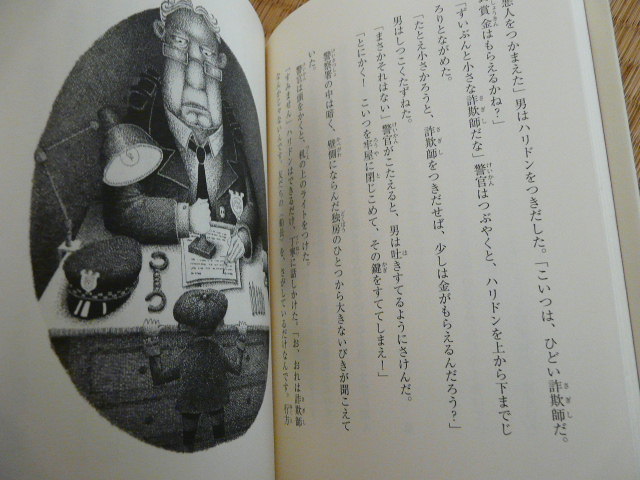 悪人をつかまえた」男はハリドンをつきだした。「こいつは、ひどい詐欺師だ。
賞金はもらえるかね?」
「ずいぶんと小さな詐欺師だな」警官はつぶやくと、ハリドンを上から下までじ
ろりとながめた。
「たとえ小さかろうと、詐欺師をつきだせば、少しは金がもらえるんだろう?」
男はしつこくたずねた。
「まさかそれはない」警官がこたえると、男は吐きすてるようにさけんだ。
「とにかく!こいつを牢屋に閉じこめて、その鍵をすててしまえ!」
警察署の中は暗く、壁際にならんだ独房のひとつから大きないびきが聞こえて
いた。
警官は頭をかくと、机の上のライトをつけた。
「すみません」ハリドンはできるだけ、丁寧に話しかけた。「お、おれは詐欺師
なんかじゃないんです。友だちの〈船長〉を、さがしているだけなんです。行方